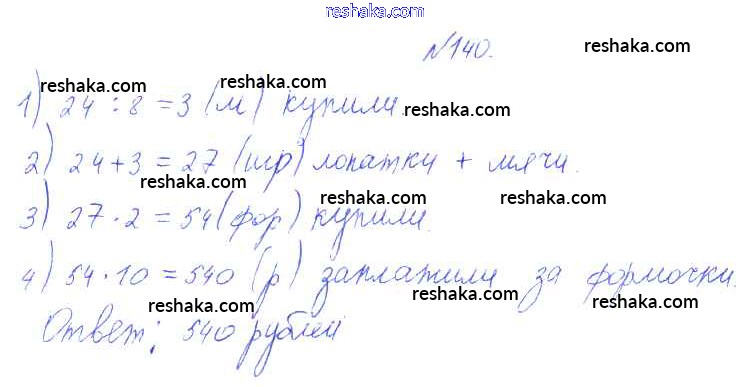 reshaka.com
№140.
reshaka.com
reshaka.com reshaka.com
1) 24 : 8 = 3 (м) купили.
reshaka.com
2) 24 + 3 = 27 (шр) лопатки + мячи.
reshaka.com reshaka.com
3) 27 · 2 = 54 (фор) купили.
reshaka.com
4) 54 · 10 = 540 (р) заплатили за формочки.
reshaka.com reshaka.com reshaka.com
Ответ: 540 рублей
reshaka.com